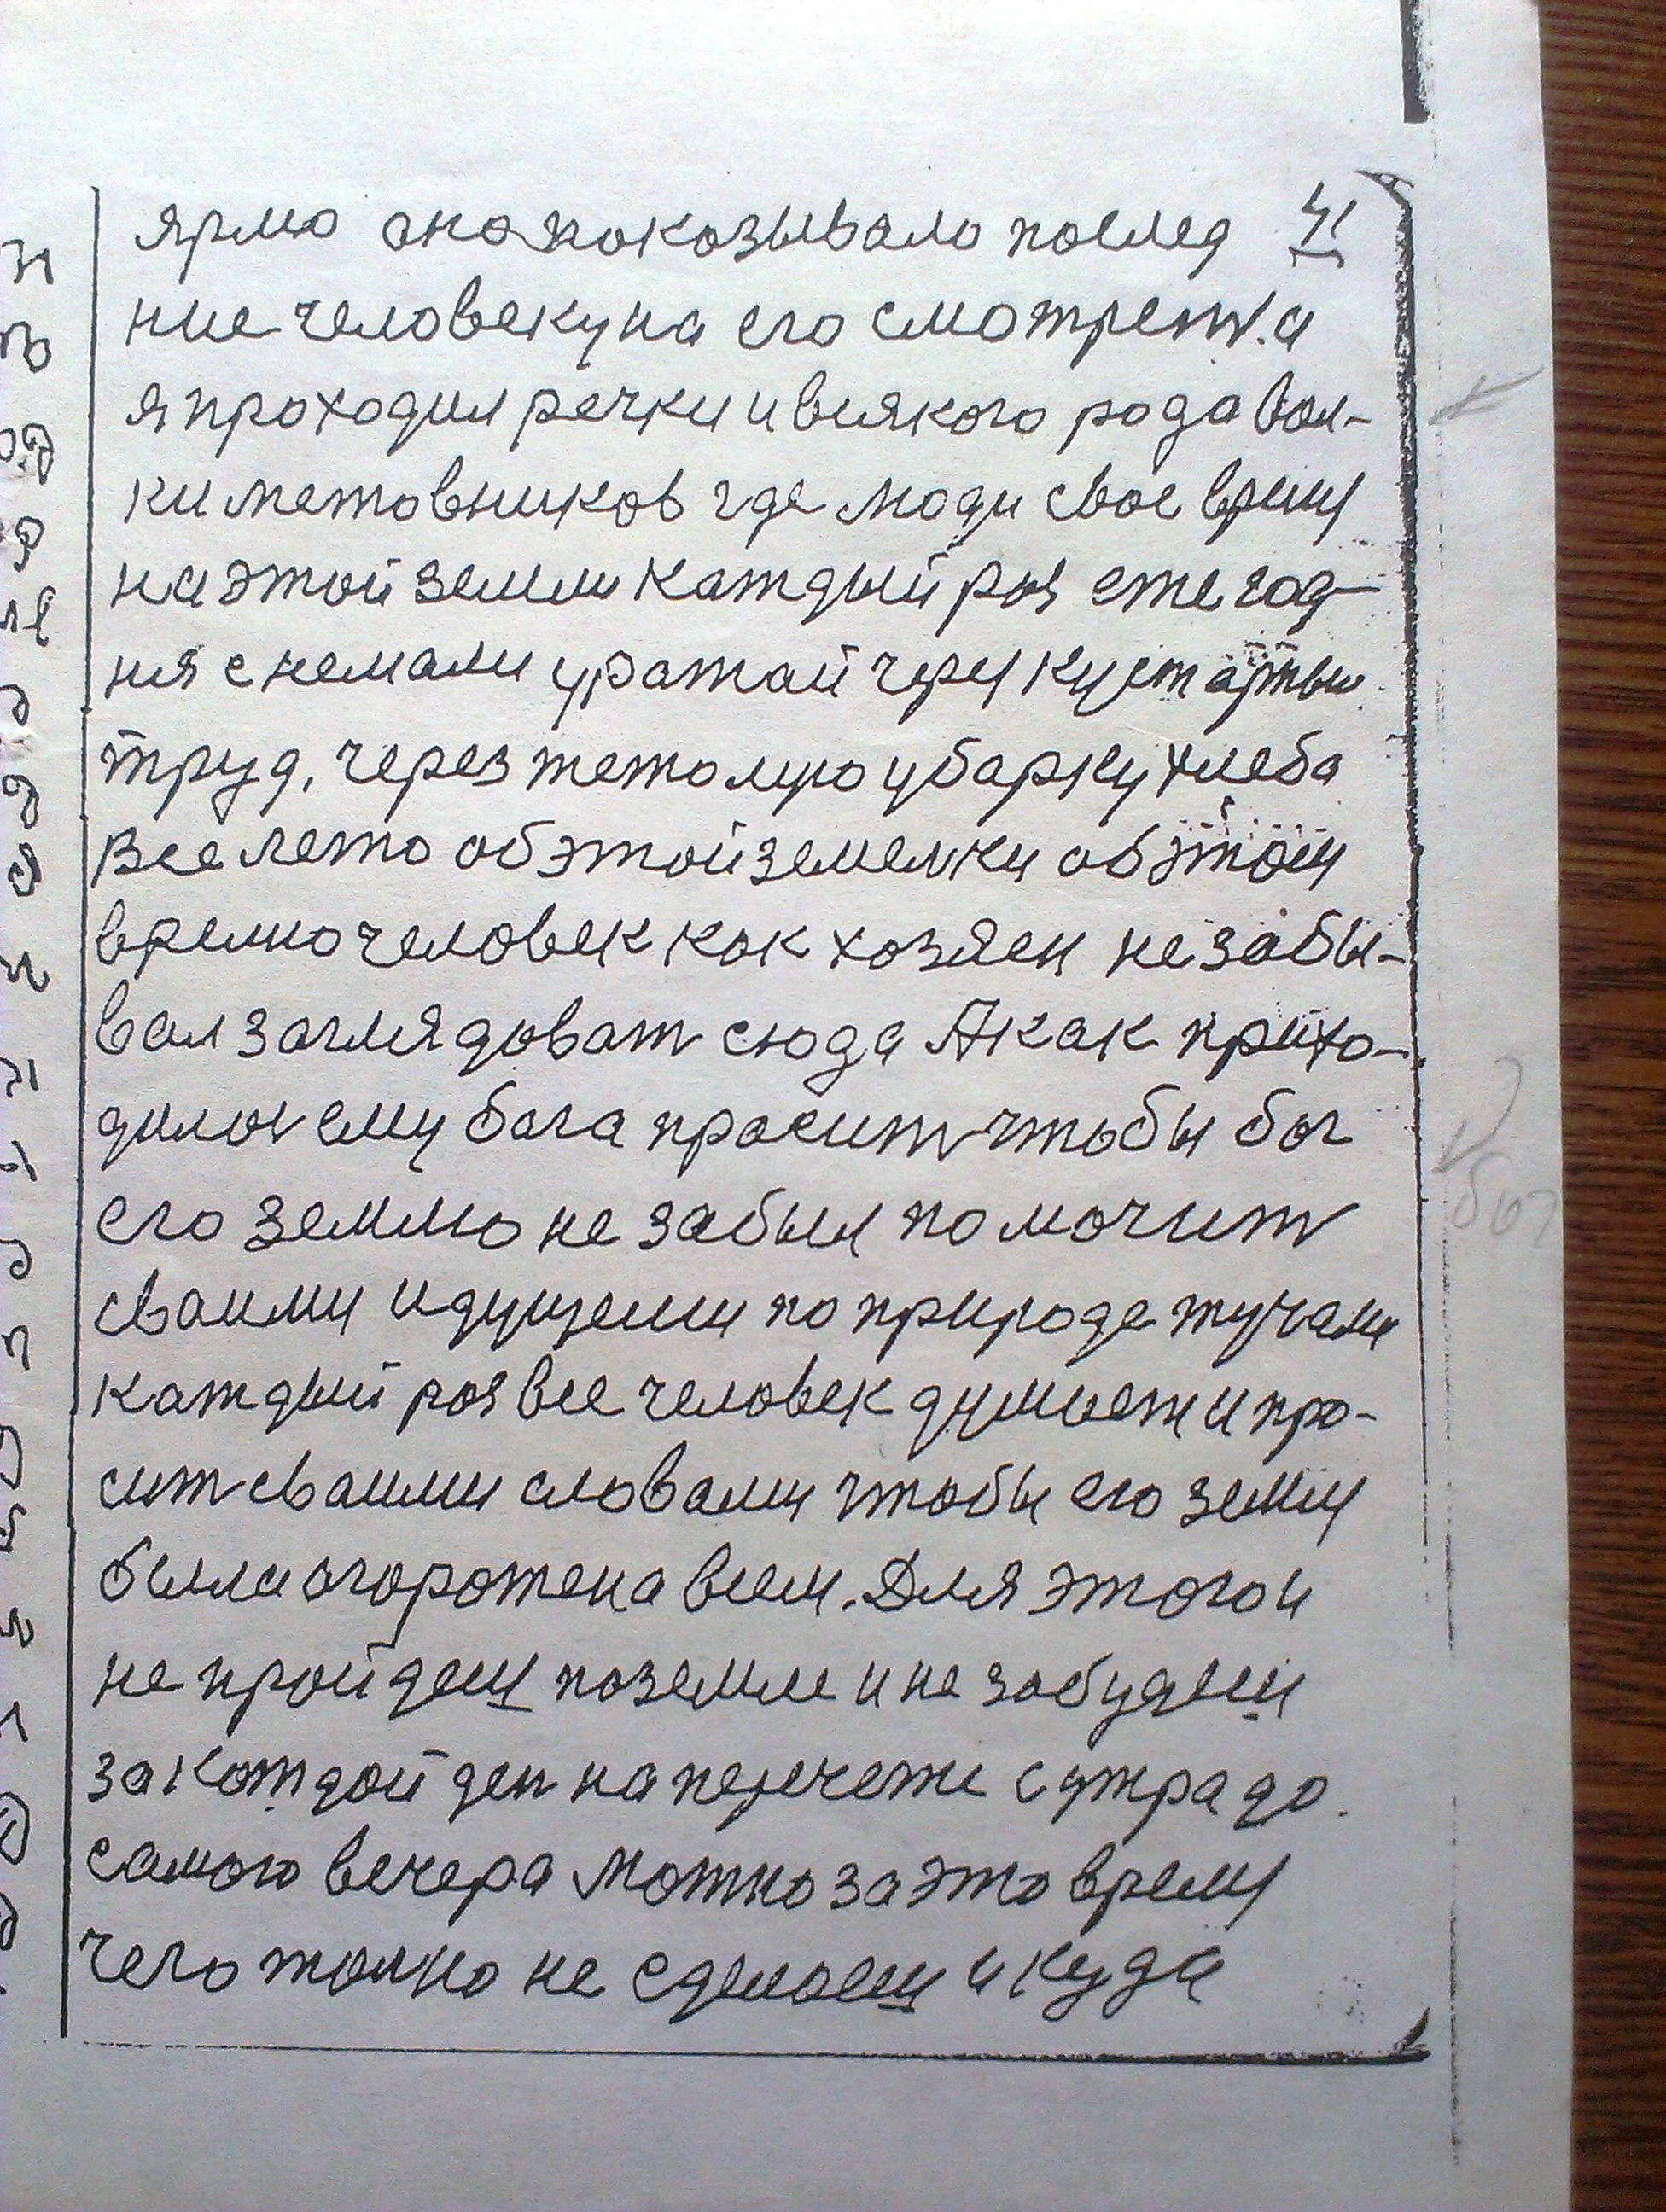 ярмо оно показывало послед 41
ние человеку на его смотрет. а
я проходил речки и всякого рода вол-
ки метовников где люди свое время
на этой земли каждый раз ежегод-
ня снемали уражай через кустарные
труд, через тежолую уборку хлеба
Все лето об этой земелки об этом
времю человек как хозяен не забы-
вал заглядоват сюда А как прихо-
дилос ему бога просит чтобы бог
его землю не забыл помочит
сваими идущеми по природе тучами
каждый раз все человек думает и про-
сит сваими словами чтобы его земля
была огорожена всем. Для этого и
не пройдеш по земле и не забудеш
за каждой ден на перечете с утра до
самого вечера Можно за это время
чего толко не сделаеш и куда